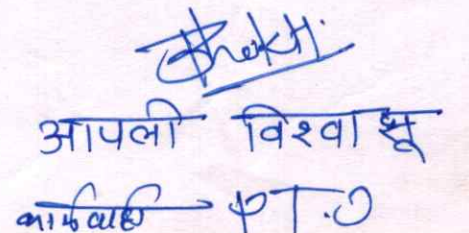 Bhakti
आपली विश्वासू
कार्यवाही P.T.O